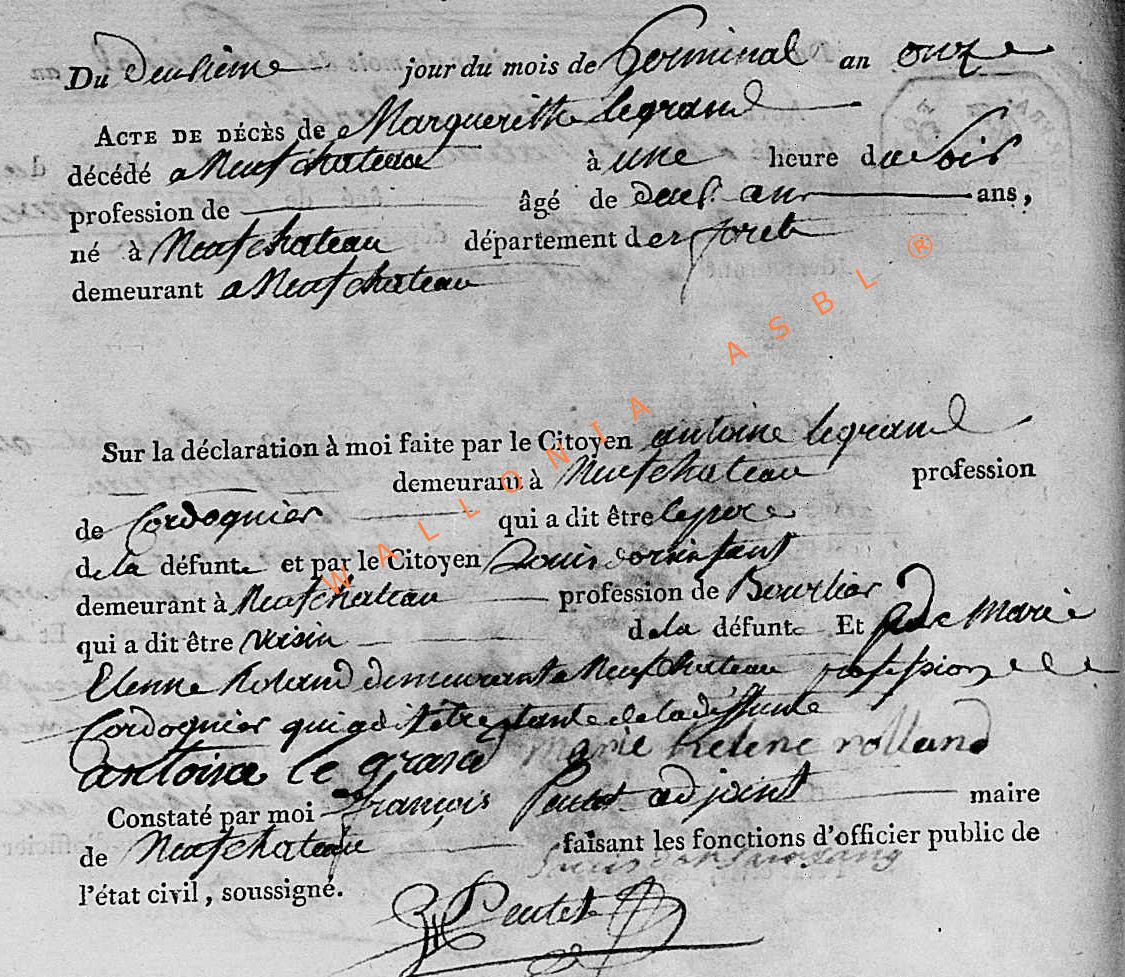 Du deusieme jour du mois de Germinal an onze
ACTE DE DÉCÈS de Margueritte legrand
décédé a Neufchateau à une heure du Soir
profession de âgé de deus ans ans,
né à Neufchateau département des forets
demeurant a Neufchateau
Sur la déclaration à moi faite par le Citoyen antoine legrand
demeurant à Neufchateau profession
de Cordognier qui a dit être le pere
de la défunte et par le Citoyen Louis
demeurant à Neufchateau profession de Bourlier
qui a dit être voisin de la défunte Et par Marie
Elenne Roland demeurant a Neufchateau profession de
Cordognier qui a dit être tante de la deffunte
antoine le grand marie helene rolland
Constaté par moi François Peutet adjoint maire
de Neufchateau faisant les fonctions d'officier public de
l'état civil, soussigné.
Peutet
WALLONIA ASBL ®